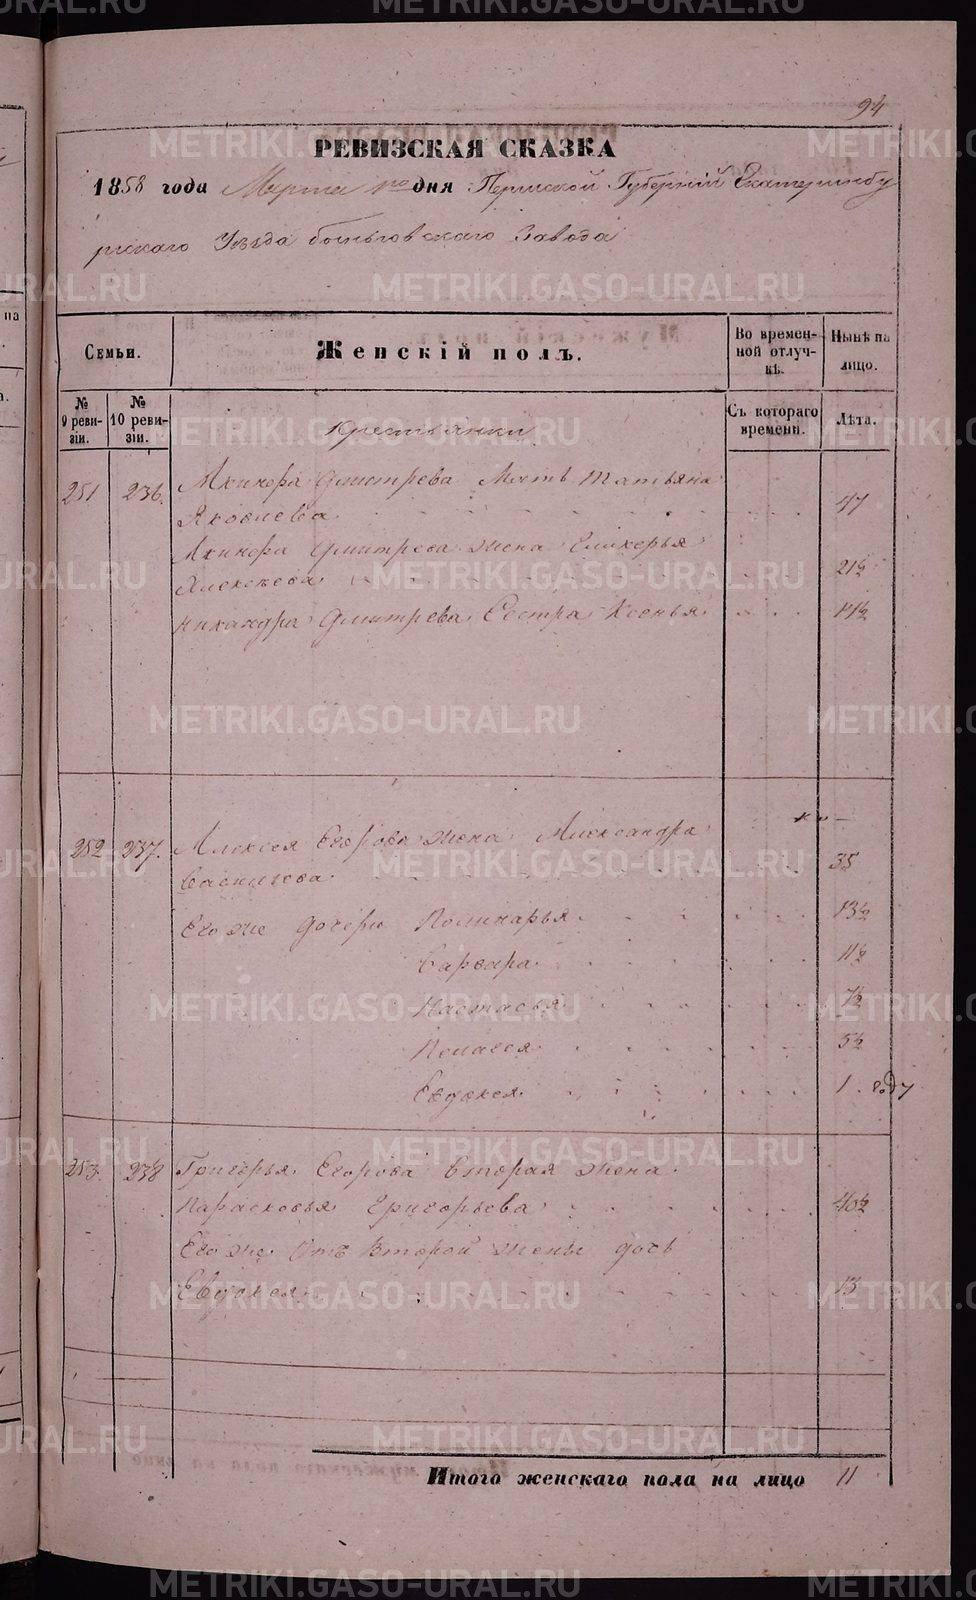 94
РЕВИЗСКАЯ СКАЗКА
1858 года Марта дня Пермской Губернiи Екатеринбу
ргскаго Уѣзда Заводa
Семьи.
Женскiй полъ.
Во времен-
ной отлуч-
кѣ.
Нынѣ на
лицо.
№
9 реви-
зiи.
№
10 реви-
зiи.
Крестьянки
Съ котораго
времени.
Лѣта.
251 236. Дмитрева Мать Татьяна
Яковлева 47
Дмитрева жена
Алексѣева 21½
Никандра Дмитрева Сестра Ксенья 11½
252 237. Алексея Егорова жена Александра
Васильева 35
Его же дочери 13½
Варвара 11½
Настасья 7½
5½
Евдокея 1 году
253. 238 Григорья Егорова вторая жена
Парасковья Григорьева 40½
Его же Отъ второй жены дочь
Евдокея 13
Итого женскаго пола на лицо 11
METRIKI.GASO-URAL.RU